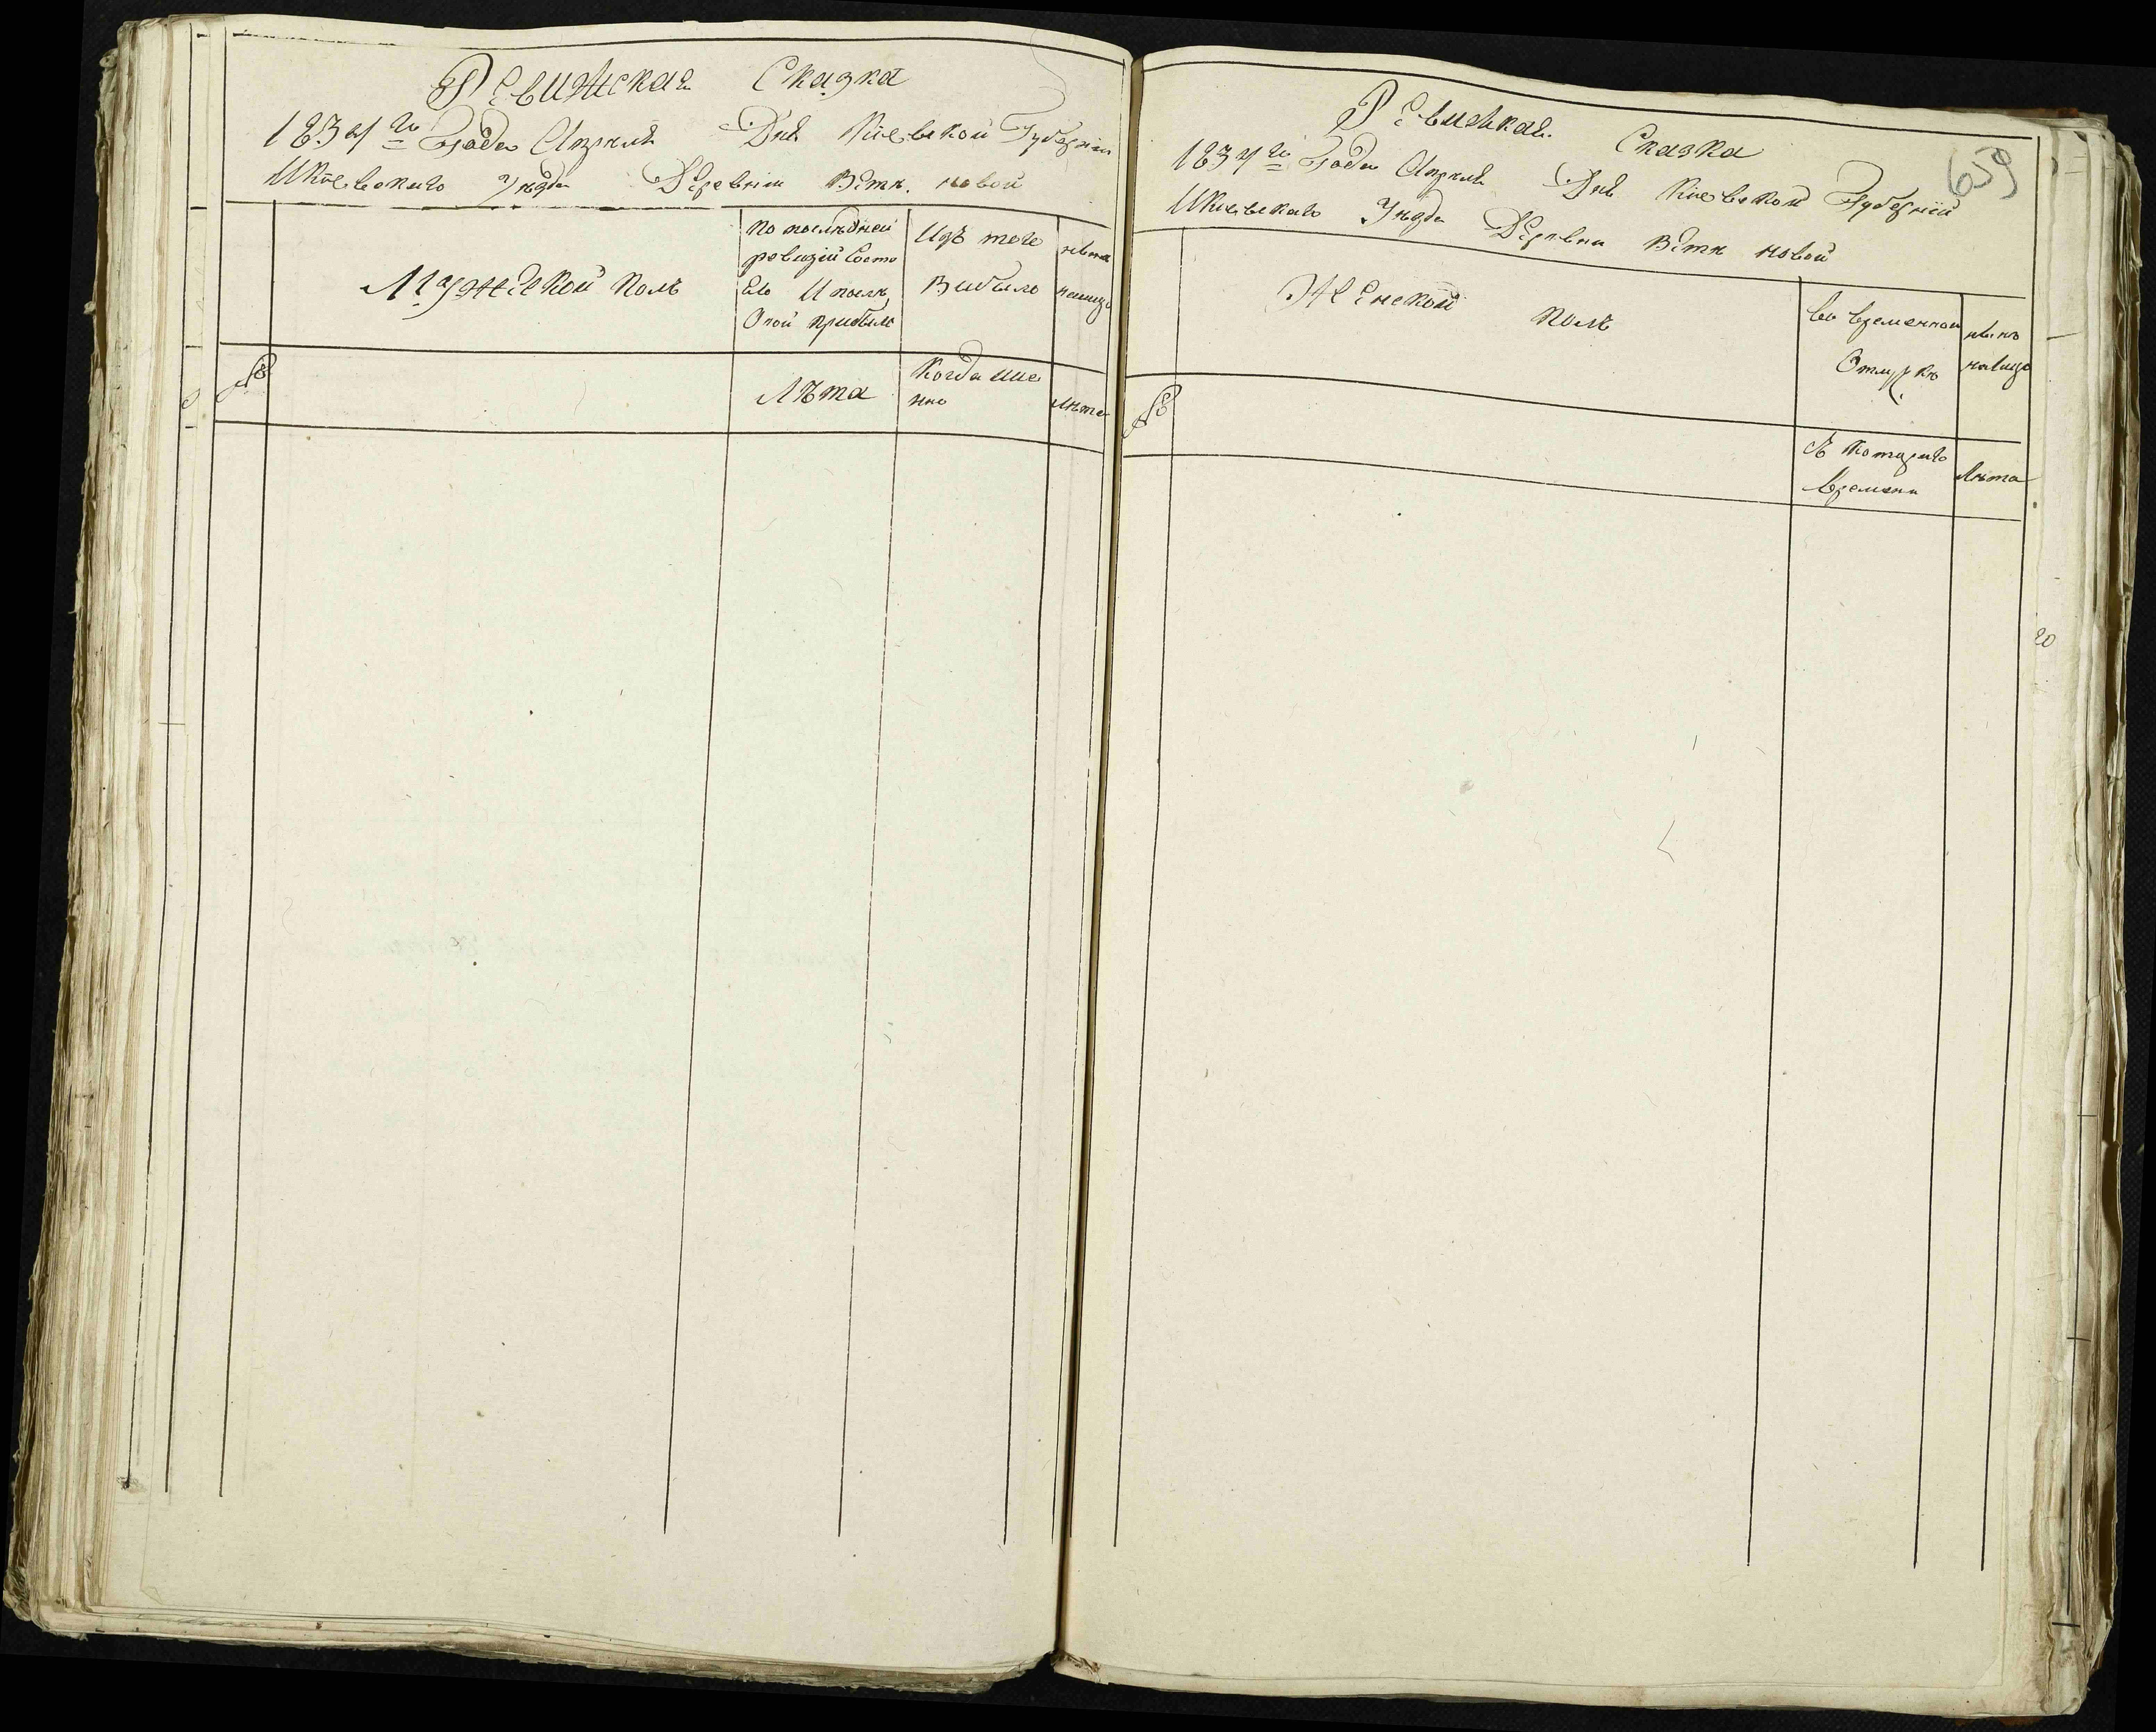 Ревижская Сказка
1834 го Года Апреля Дня Кіевской Губерніи
И Кіевскаго Уезда Деревни Вѣтк. новой
Мужеской полъ
По последней
ревизіи Состо
яло И после
Оной прибыло
Изъ того
Выбыло
ныне
налицо
№
Лѣта
Когда име
нно
Лѣта
Ревижкая Сказка
659
1834 го Года Апреля Дня Кіевской Губерніи
И Кіевскаго Уезда Деревни Вѣтк новой
Женской полъ
Во временной
Отлучке
ныне
налицо
№
Съ котораго
Времени
Лѣта
20